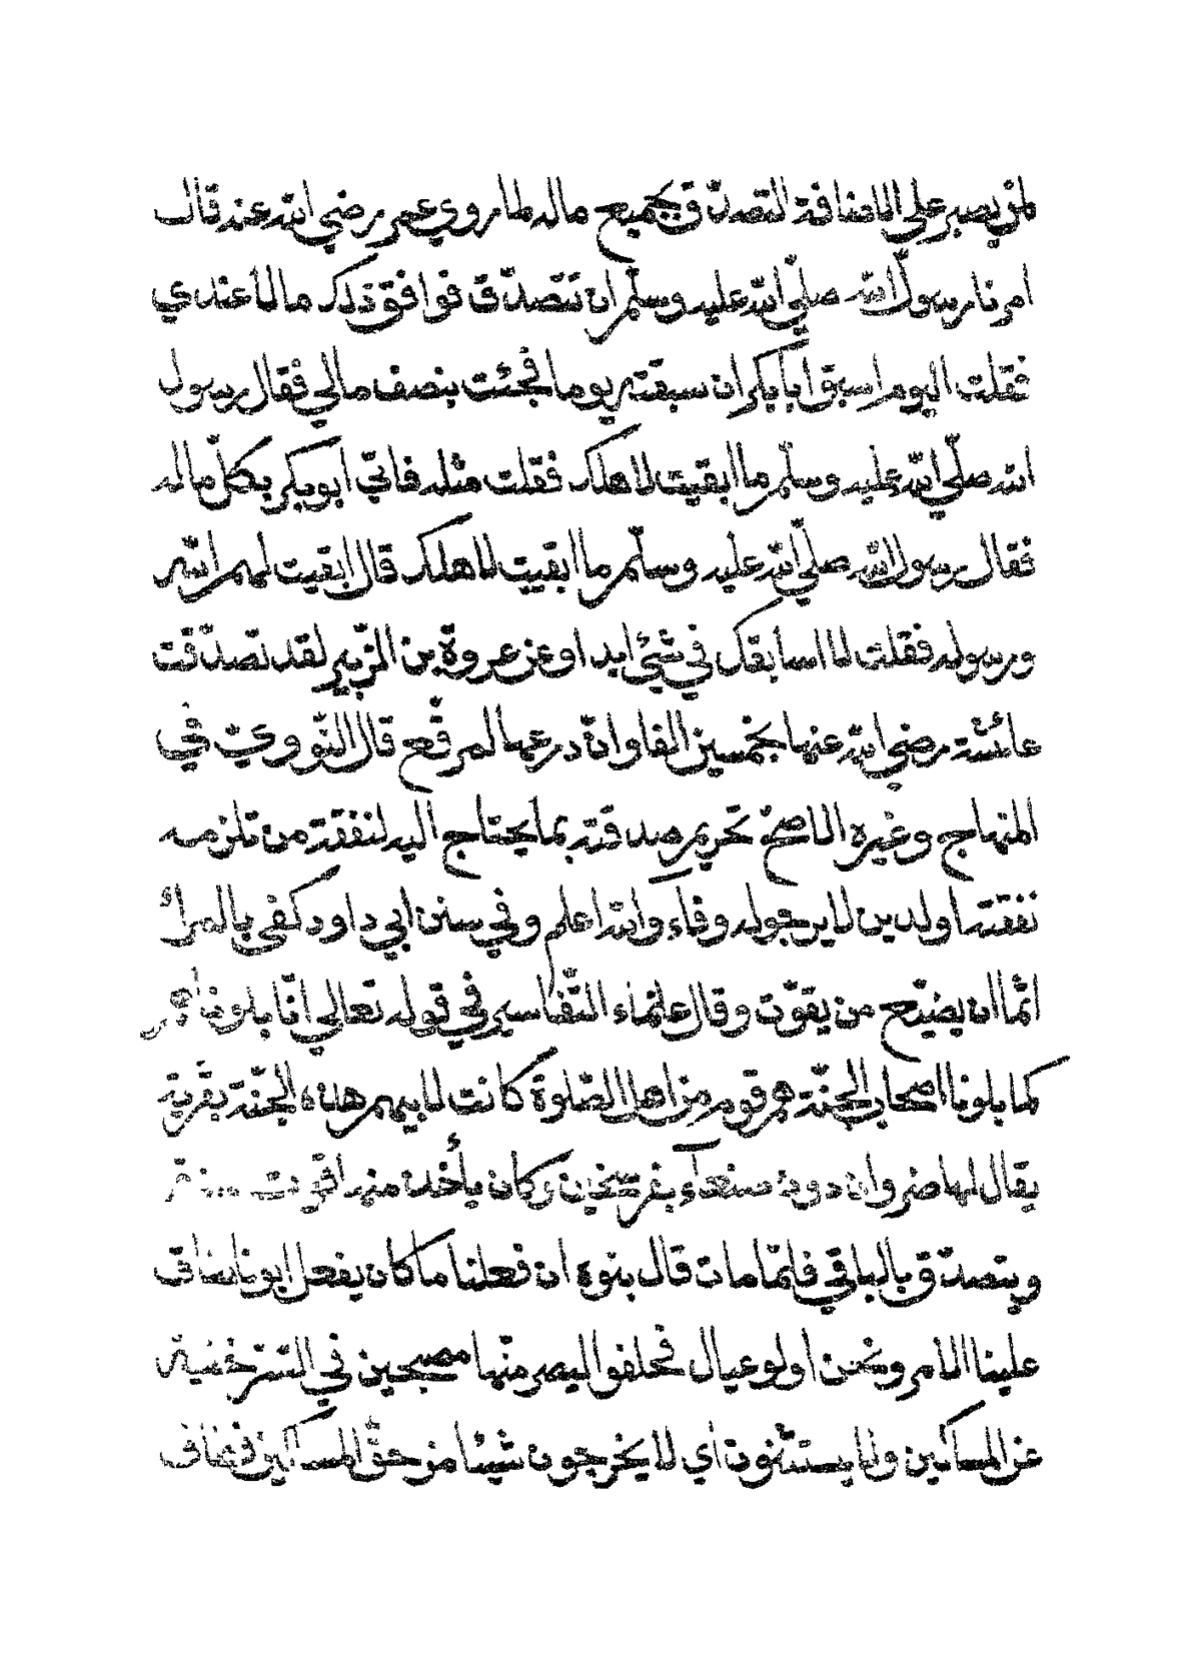 لمن يصبر على الاضافة التصدّق بجميع ماله لما روي عمر رضي الله عنه قال
امرنا رسول الله صلّي الله عليه وسلّم ان نتصدّق فوافق ذلك مالا عندي
فقلت اليوم اسبق ابا بكر ان سبقته يوما فجئت بنصف مالي فقال رسول
الله صلّي الله عليه وسلّم ما ابقيت لاهلك فقلت مثله فاتي ابو بكر بكلّ ماله
فقال رسول الله صلّي الله عليه وسلّم ما ابقيت لاهلك قال ابقيت لهم الله
ورسوله فقلت لا اسابقك في شيئ ابدا وعن عروة بن الزّبير لقد تصدّقت
عائشة رضي الله عنها بخمسين الفا وانّ درعها لمرقّع قال النّووي في
المنهاج وغيره الاصحّ تحريم صدقته بما يحتاج اليه لنفقة من تلزمه
نفقته او لدين لا يرجو له وفاء والله اعلم وفي سنن ابي داود كفى بالمرأ
اثما ان يضيّع من يقوّت وقال علماء التّفاسير في قوله تعالي انّا بلوناهم
كما بلونا اصحاب الجنّة هم قوم من اهل الصّلوة كانت لابيهم هذه الجنّة بقرية
يقال لها ضروان دون صنعآء بفرسخين وكان يأخذ منها قوت
ويتصدّق بالباقي فلمّا مات قال بنوه ان فعلنا ما كان يفعل ابونا ضاق
علينا الامر ونحن اولو عيال فحلفوا ليصرمنّها مصبحين في السّرّ خفية
عن المساكين ولا يستثنون اي لا يخرجون شيئا من حقّ المساكين